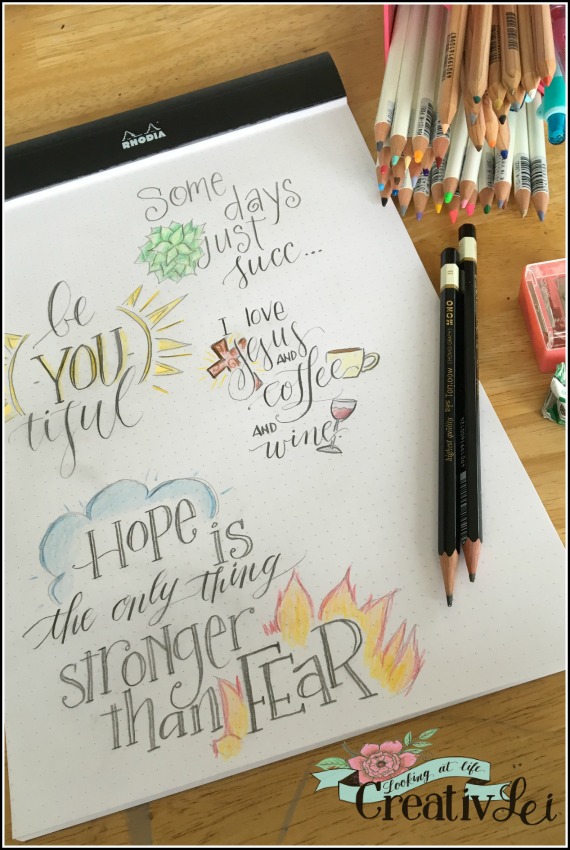 RHODIA
Some
days
just
succ...
be
(YOU)
tiful
I love
Jesus AND
coffee
AND
wine
HOPE is
the only thing
stronger
than FEAR
MONO
TOMBOW
Looking at life
CreativLëi